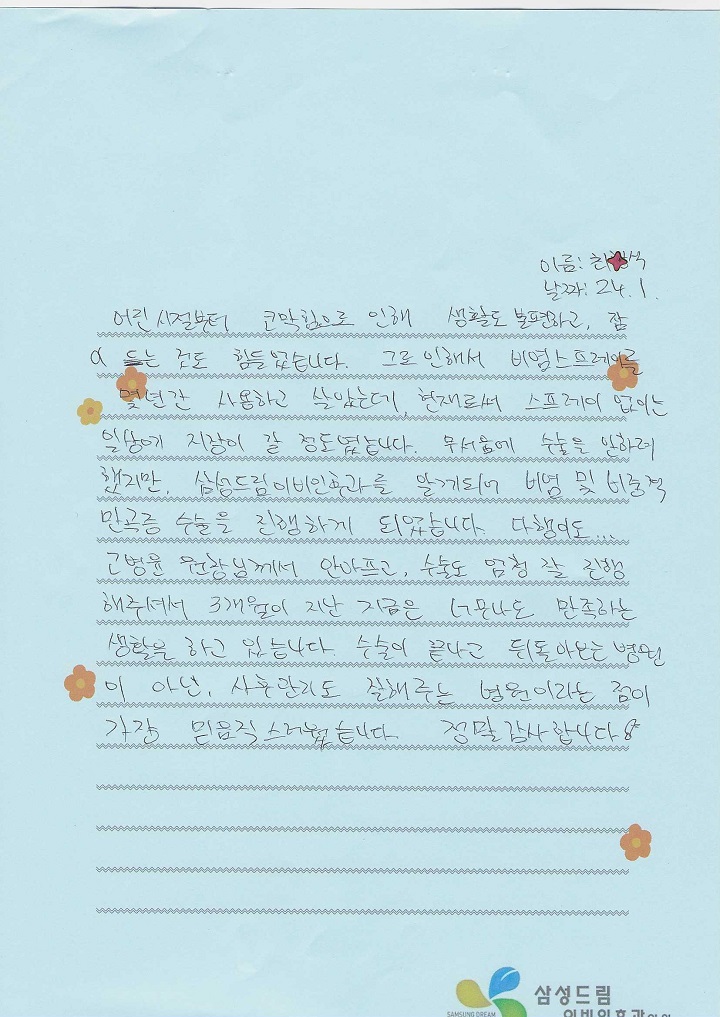 이름: 최석
날짜: 24. 1.
어린시절부터 코막힘으로 인해 생활도 불편하고, 잠
에 드는 것도 힘들었습니다. 그로인해서 비염스프레이를
몇년간 사용하고 살았는데, 현재로써 스프레이 없이는
일상에 지장이 갈 정도였습니다. 무서움에 수술을 안하려
했지만, 삼성드림이비인후과를 알게되어 비염 및 비중격
만곡증 수술을 진행하게 되었습니다. 다행이도...
고병윤 원장님께서 안아프고, 수술도 엄청 잘 진행
해주셔서 3개월이 지난 지금은 너무나도 만족하는
생활을 하고 있습니다. 수술이 끝나고 뒤돌아오는 병원
이 아닌, 사후관리도 잘해주는 병원이라는 점이
가장 믿음직스러웠습니다. 정말감사합니다
SAMSUNG DREAM
삼성드림
이비인후과의원